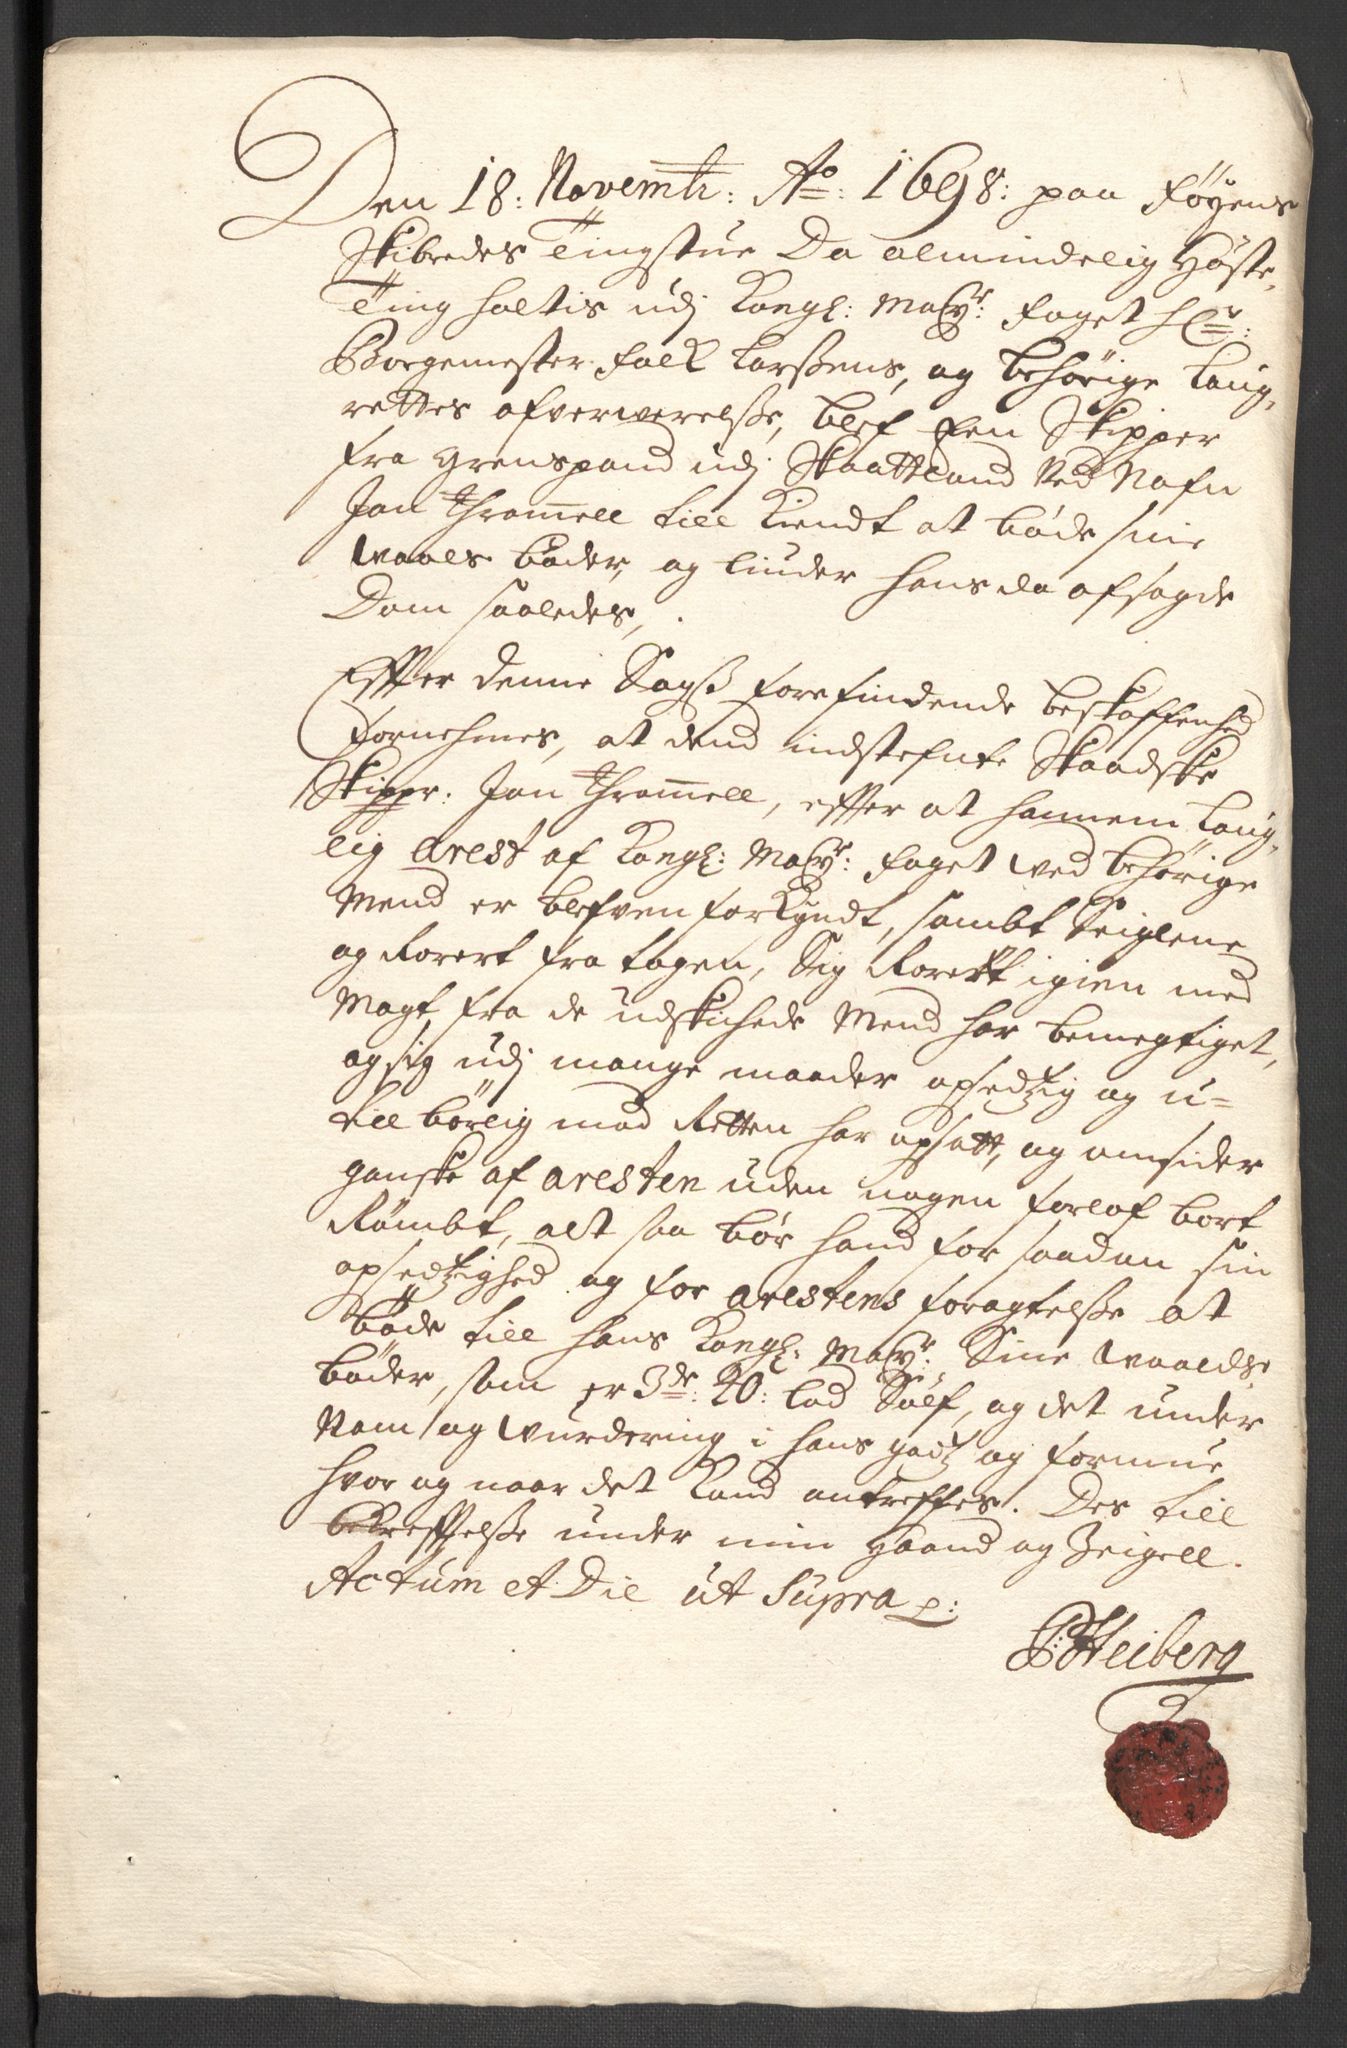 Den 18: Novembr: Ao: 1698: paa Føyens
Skibredes Tingstue Da almindelig Høste-
Ting holtis udj Kongl: Maÿtz: foget Hr:
Borgemester Falk Larssens, og behørige Laug-
rettes ofverwerelsse, blef een Skipper
fra Grenspand udj Skaattland ved Nafn
Jan Thromell till kiendt at bøde sine
Waals bøder, og liuder hans da afsagde
Dom saaledes,
Effter denne Sags forefindende beskaffenhed
fornehmes, at dend indstefnte Skaadske
Skippr: Jan Thromell, effter at hannem Laug-
lig Arest af Kongl: Maÿtz: foget ved behørige
Mend er blefven forkyndt, sambt Seiglene
og Roret fra tagen, Sig Roret igien med
Magt fra de udskichede Mend har bemegtiget,
og sig udj mange maader opsedtzig og u-
tilbørlig mod Retten har opsatt, og omsider
ganske af Aresten uden nogen forlof bort
Rømbt, alt saa bør hand for saadan sin
opsedtzighed og for Arestens foragtelsse at
bøde till hans Kongl: Maÿtz: Sine Waalds
bøder, som er 3de: 40: lod Sølf, og det under
Nam og Vurdering i hans godtz og formue
hvor og naar det kand antreffes. Des till
bekrefftelsse under min Haand og Zeigell.
Actum et Die ut Supra
P: Heiberg